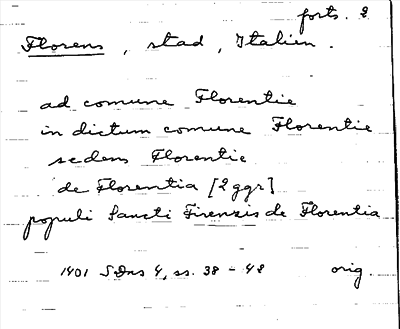 forts. 2
Florens, stad, Italien.
ad comune Florentie
in dictum comune Florentie
sedens Florentie
de Florentia [2 ggr]
populi Sancti Firenzis de Florentia
1401 SDns 4, ss. 38 - 48 orig.